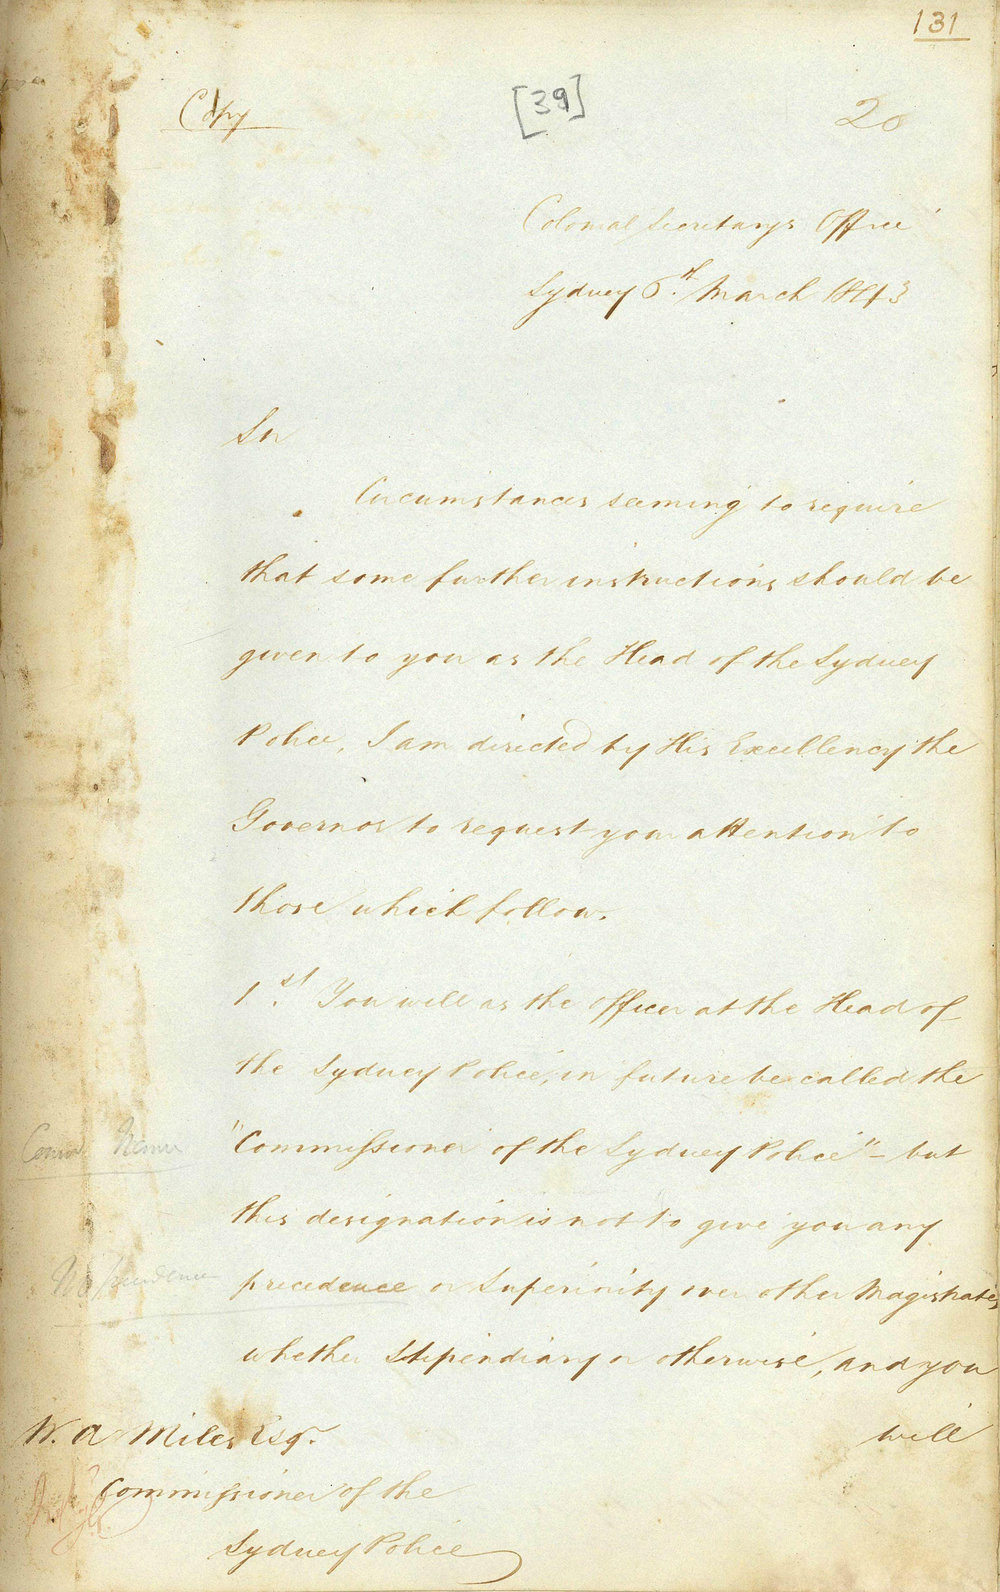 131
Copy
[39]
20
Colonial Secretarys Office
Sydney 6th March 1843
Sir
Circumstances seeming to require
that some further instructions should be
given to you as the Head of the Sydney
Police, I am directed by His Excellency the
Governor to request your attention to
those which follow.
1st. You will as the officer at the Head of
the Sydney Police, in future be called the
"Commissioner of the Sydney Police" - but
this designation is not to give you any
precedence or Superiority over other Magistrates
whether Stipendiary or otherwise, and you
will
W. A Miles Esqr.
Commissioner of the
Sydney Police